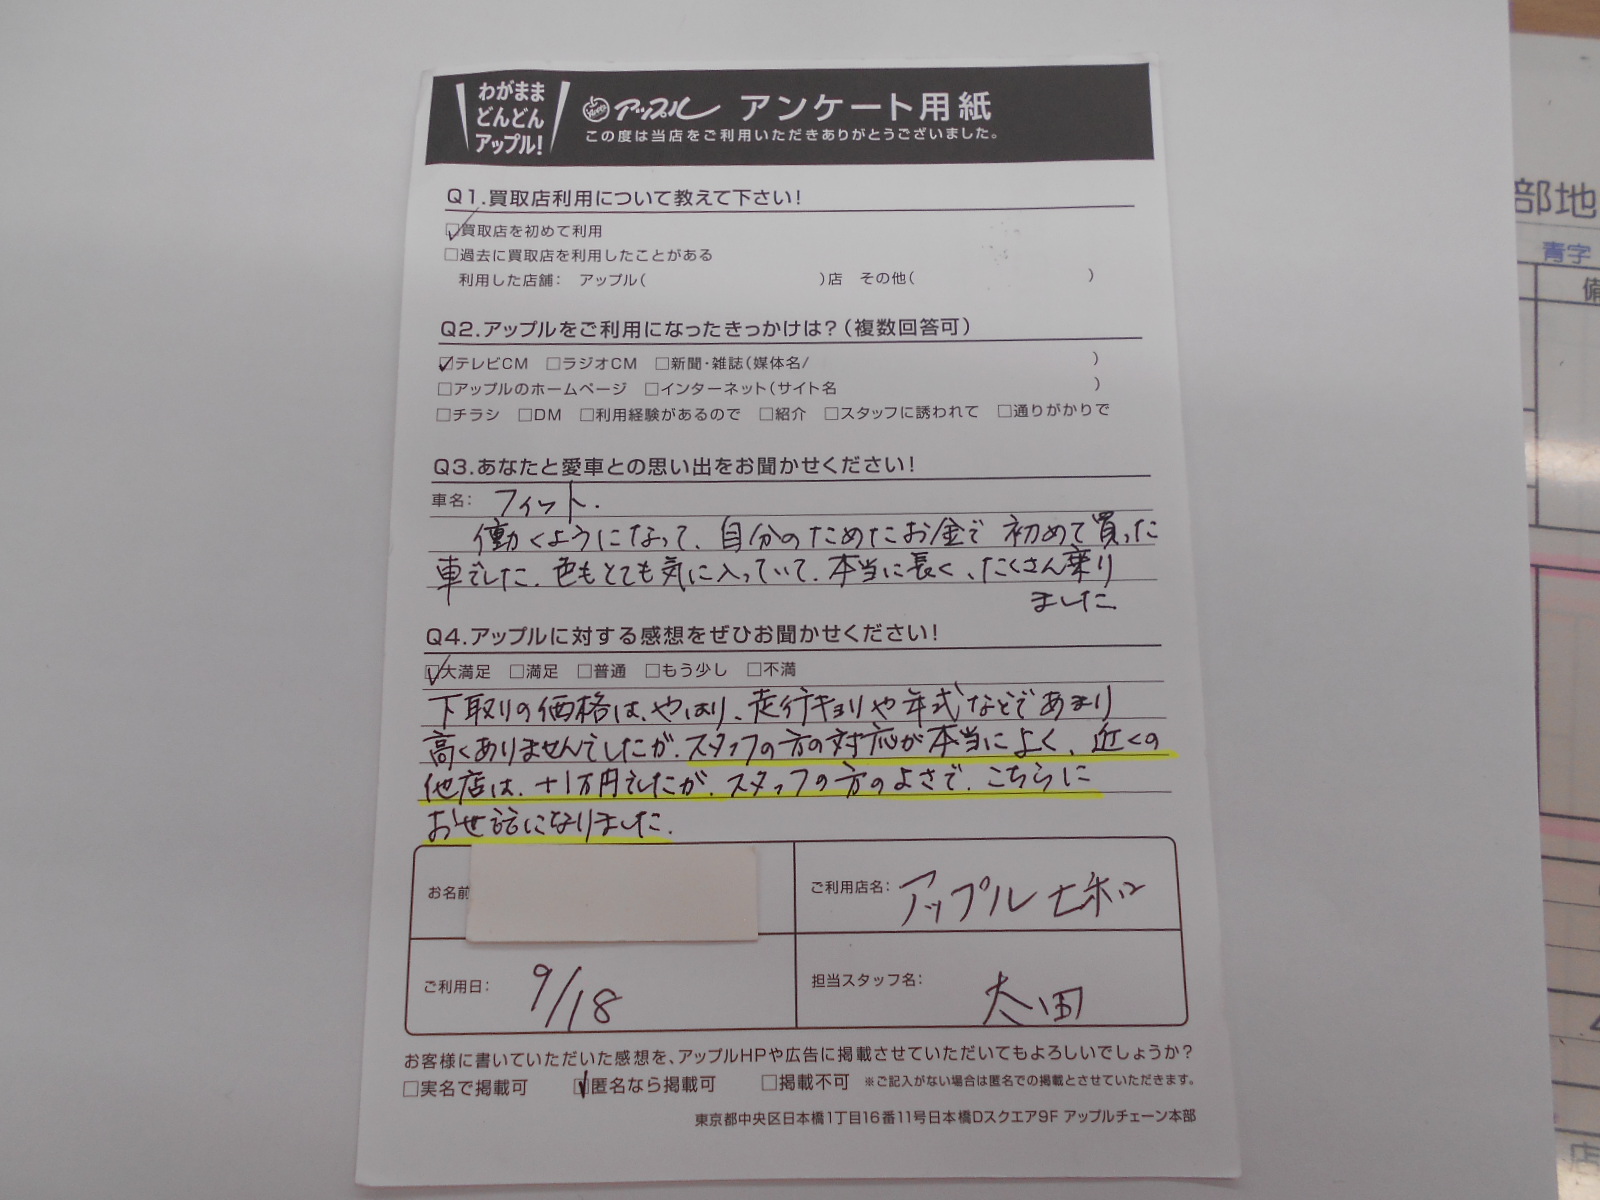 わがまま
どんどん
アップル!
アップル アンケート用紙
この度は当店をご利用いただきありがとうございました。
Q1.買取店利用について教えて下さい!
☑買取店を初めて利用
□過去に買取店を利用したことがある
利用した店舗: アップル( )店 その他( )
Q2.アップルをご利用になったきっかけは?(複数回答可)
☑テレビCM □ラジオCM □新聞・雑誌(媒体名/ )
□アップルのホームページ □インターネット(サイト名 )
□チラシ □DM □利用経験があるので □紹介 □スタッフに誘われて □通りがかりで
Q3.あなたと愛車との思い出をお聞かせください!
車名: フィット.
働くようになって、自分のためたお金で 初めて買った
車でした。色もとても気に入っていて、本当に長く、たくさん乗り
ました
Q4.アップルに対する感想をぜひお聞かせください!
☑大満足 □満足 □普通 □もう少し □不満
下取りの価格は、やはり、走行キョリや年式などであまり
高くありませんでしたが、スタッフの方の対応が本当によく、近くの
他店は、+1万円でしたが、スタッフの方のよさで、こちらに
おせ話になりました.
お名前
ご利用店名: アップル
ご利用日: 9/18
担当スタッフ名: 太田
お客様に書いていただいた感想を、アップルHPや広告に掲載させていただいてもよろしいでしょうか?
□実名で掲載可 ☑匿名なら掲載可 □掲載不可 ※ご記入がない場合は匿名での掲載とさせていただきます。
東京都中央区日本橋1丁目16番11号日本橋Dスクエア9F アップルチェーン本部
部地
青字
備
店